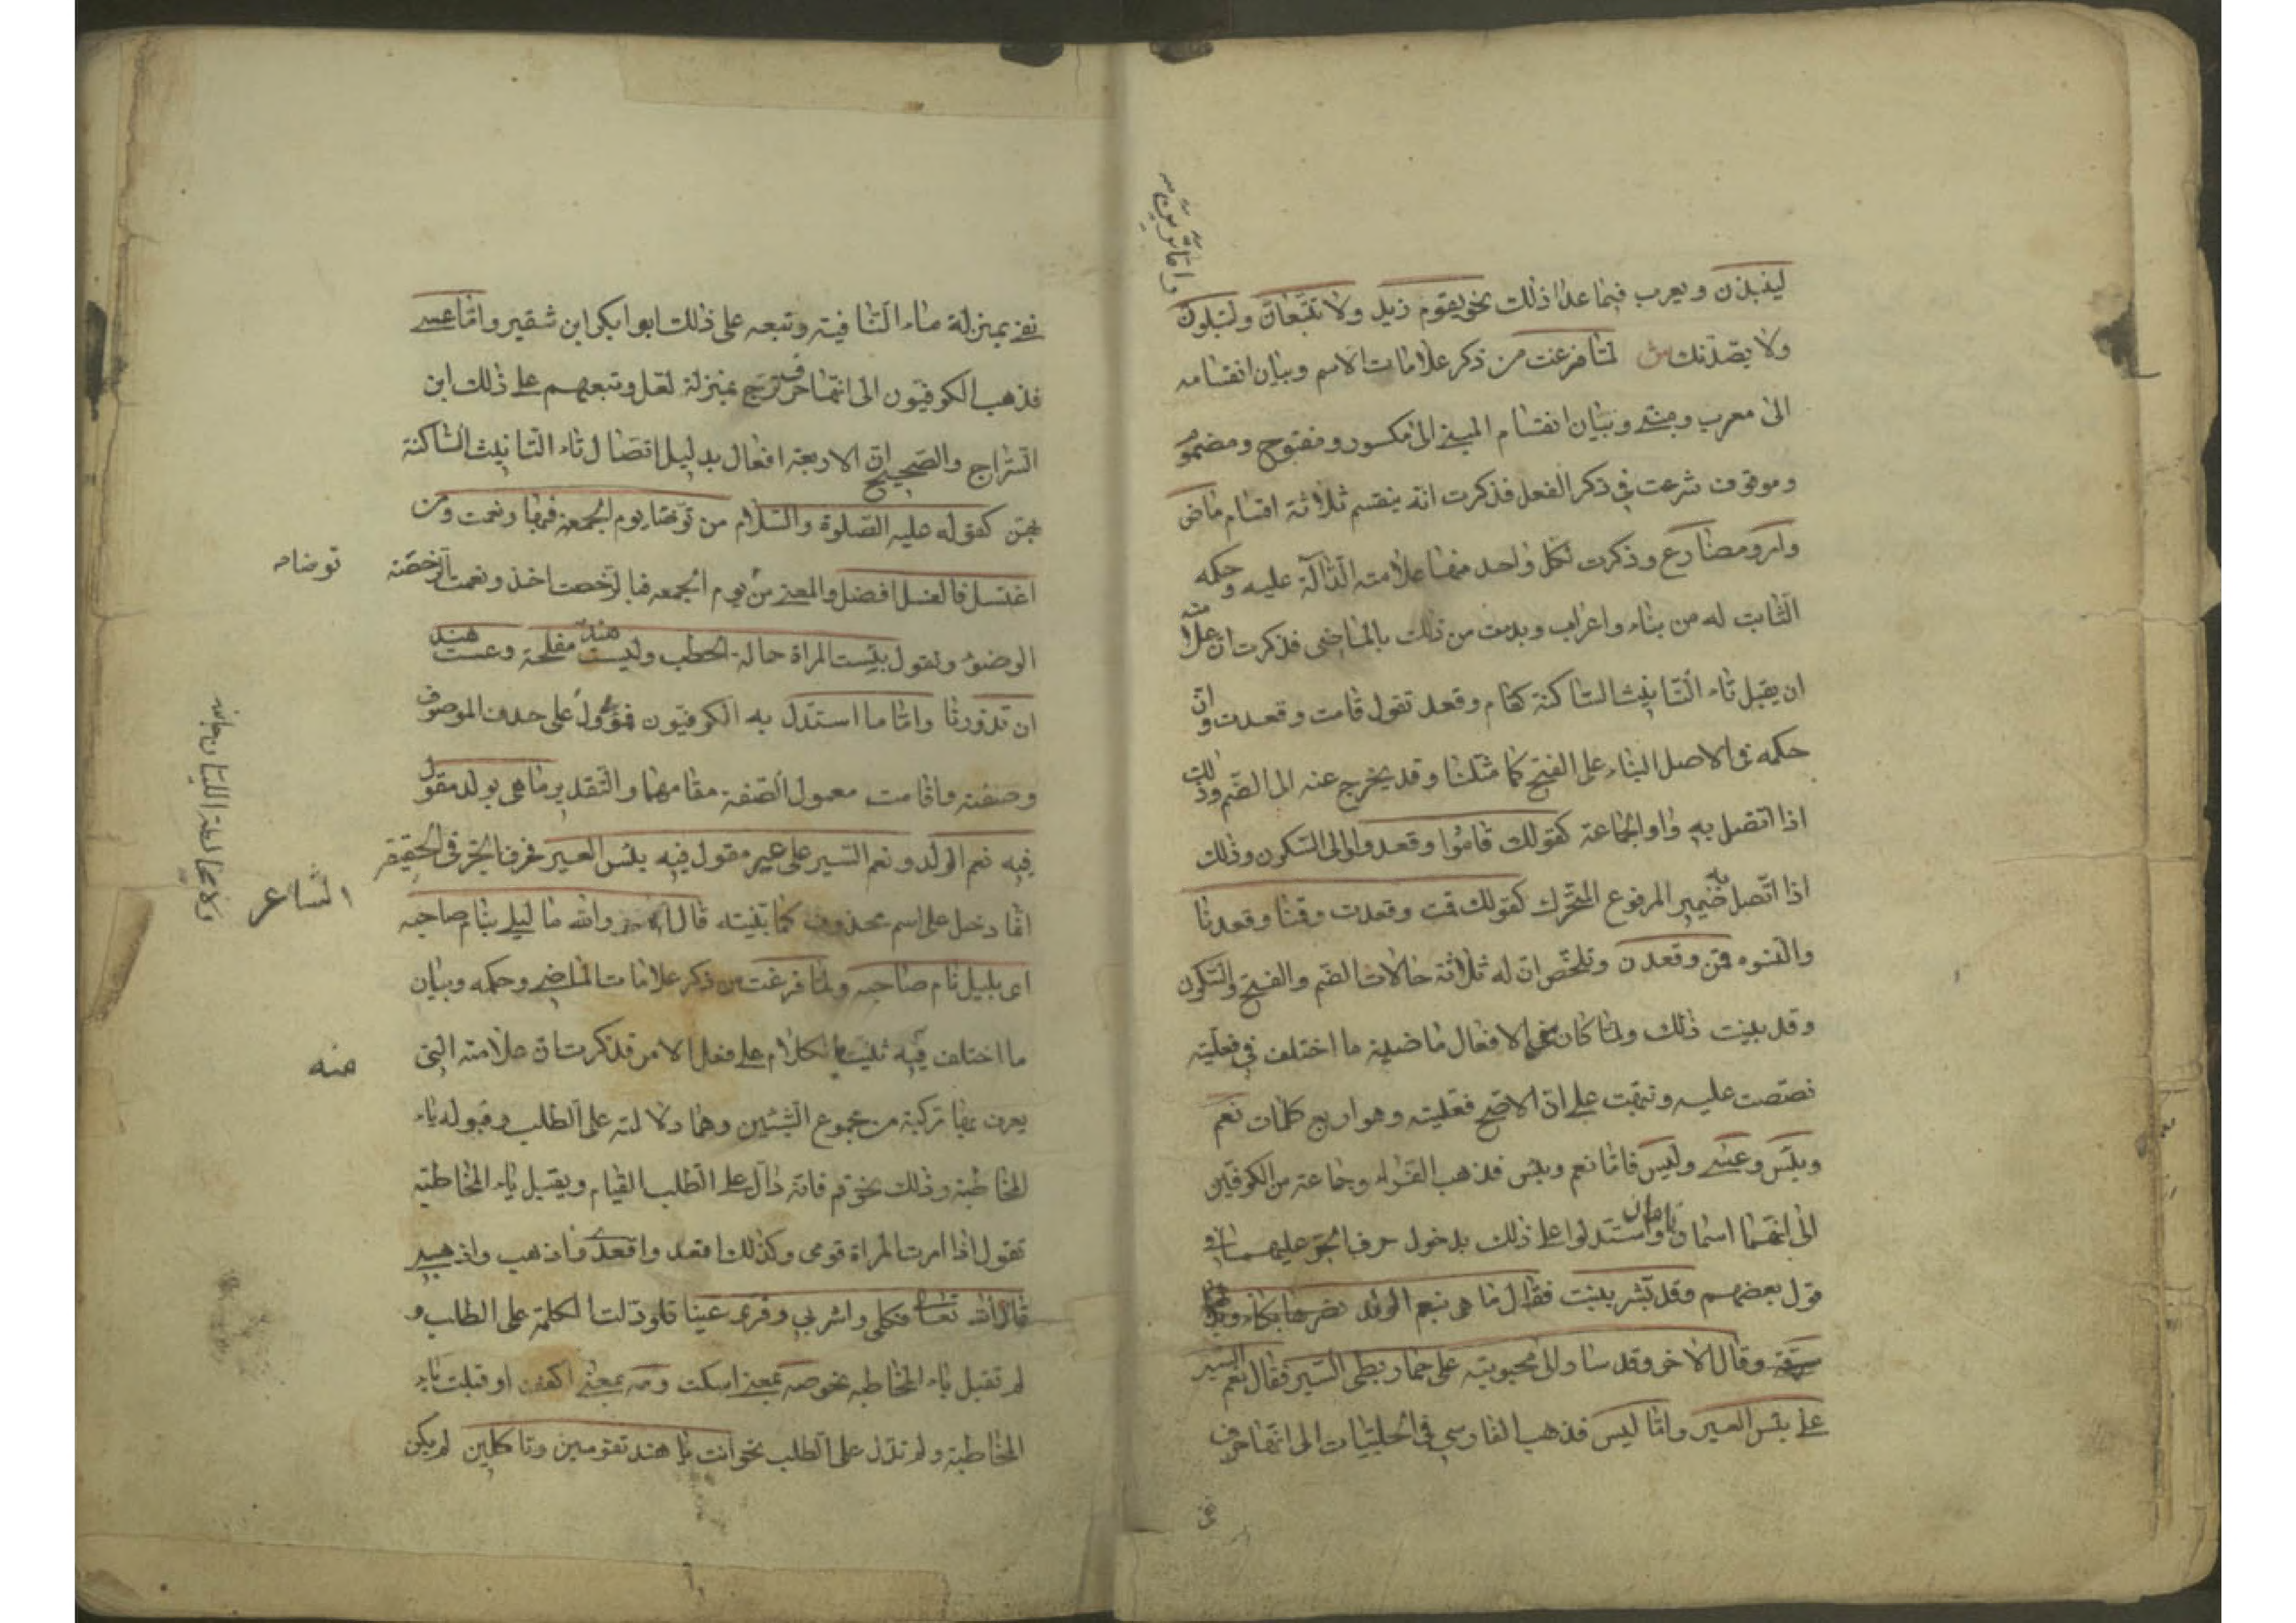 لينبذن ويعرب فيما عدا ذلك نحو يقوم زيد ولا تتبعان ولتبلون
واما ترين
ولا يصدنك ش لما فرغت من ذكر علامات الاسم وبيان انقسامه
الى معرب ومبني وبيان انقسام المبني الى مكسور ومفتوح ومضموم
وموقوف شرعت في ذكر الفعل فذكرت انه ينقسم ثلاثة اقسام ماض
وامر ومضارع وذكرت لكل واحد منها علامته الدالة عليه وحكمه
الثابت له من بناء واعراب وبدءت من ذلك بالماضي فذكرت ان علامته
ان يقبل تاء التانيث الساكنة كقام وقعد تقول قامت وقعدت وان
حكمه في الاصل البناء على الفتح كما مثلنا وقد يخرج عنه الى الضم وذلك
اذا اتصل به واو الجماعة كقولك قاموا وقعدوا او الى السكون وذلك
اذا اتصل به ضمير المرفوع المتحرك كقولك قمت وقعدت وقمنا وقعدنا
والنسوه قمن وقعدن وتلخص ان له ثلاثة حالات الضم والفتح والسكون
وقد بينت ذلك ولما كان من الافعال ماضية ما اختلف في فعليته
نصصت عليه ونبهت على ان الاصح فعليته وهو اربع كلمات نعم
وبئس وعسى وليس فاما نعم وبئس فذهب الفراء وجماعة من الكوفيين
الى انهما اسمان واستدلوا على ذلك بدخول حرف الجر عليهما في
قول بعضهم وقد بشر ببنت فقال ما هي بنعم الولد نصرها بكاء وبرها
سرقة وقال الاخر وقد سار الى محبوبته على حمار بطى السير فقال نعم السير
على بئس العير واما ليس فذهب الفارسي في الحلبيات الى انها حرف
نفي بمنزلة ماء النافية وتبعه على ذلك ابو ابكر ابن شقير واما عسى
فذهب الكوفيون الى انها حرف ترج بمنزلة لعل وتبعهم على ذلك ابن
السراج والصحيح ان الاربعة افعال بدليل اتصال تاء التانيث الساكنة
بهن كقوله عليه الصلوة والسلام من توضا يوم الجمعة فبها ونعمت ومن
توضاء
اغتسل فالغسل افضل والمعنى من يوم الجمعه فبالرخصت اخذ ونعمت الرخصة
الوضوء وتقول بئست المراة حمالة الحطب وليست هند مفلحة وعست هند
ان تزورنا واما ما استدل به الكوفيون فمؤول على حذف الموصوف
وصفته واقامت معمول الصفة مقامهما والتقدير ما هي بولد مقول
فيه نعم الولد ونعم السير على عير مقول فيه بئس العير فحرف الجر في الحقيقة
الشاعر
انما دخل على اسم محذوف كما بينته قال والله ما ليلي بنام صاحبه
ولا مخالط الليان جانبه
اى بليل نام صاحبه ولما فرغت من ذكر علامات الماضي وحكمه وبيان
ما اختلف فيه ثنيت بالكلام على فعل الامر فذكرت ان علامته التي
منه
يعرف بها تركبة من مجموع الشيئين وهما دلالته على الطلب وقبوله ياء
المخاطبة وذلك نحو قم فانه دال على الطلب القيام ويقبل ياء المخاطبة
تقول اذا امرت المراة قومى وكذلك اقعد واقعدى واذهب واذهبي
قال الله تعالى فكلى واشربي وقرى عينا فلو دلت الكلمة على الطلب و
لم تقبل ياء المخاطبه نحو صه بمعنى اسكت ومه بمعنى اكفف او قبلت ياء
المخاطبة ولم تدل على الطلب نحو انت يا هند تقومين وتاكلين لم يكن